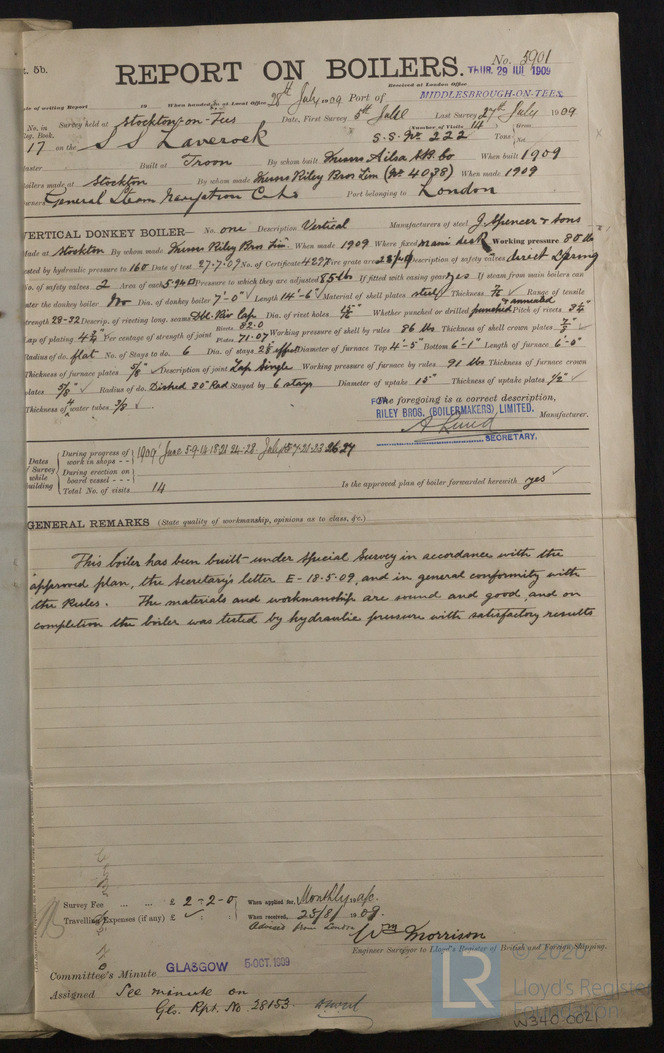 5b.
No. 5901
REPORT ON BOILERS.
THUR. 29 JUL 1909
Received at London Office
Date of writing Report 19 When handed in at Local Office 28th July 1909 Port of MIDDLESBROUGH-ON-TEES.
No. in Survey held at Stockton-on-Tees Date, First Survey 5th Last Survey 27th July 1909
Reg. Book. (Number of Visits 14)
17 on the S S Laverock S.S. No. 222 Tons Gross Net
Master Built at Troon By whom built Messrs Ailsa S.B. Co When built 1909
Boilers made at Stockton By whom made Messrs Riley Bros Lim (No 4038) When made 1909
Owners General Steam Navigation Co Ld Port belonging to London
VERTICAL DONKEY BOILER— No. one Description Vertical Manufacturers of steel J. Spencer & Sons
Made at Stockton By whom made Messrs Riley Bros Lim When made 1909 Where fixed Main deck Working pressure 80 lbs
tested by hydraulic pressure to 160 Date of test 27-7-09 No. of Certificate 4277 Fire grate area 28 Description of safety valves direct Spring
No. of safety valves 2 Area of each 5.94 Pressure to which they are adjusted 85 lbs If fitted with easing gear yes If steam from main boilers can
enter the donkey boiler no Dia. of donkey boiler 7'-0" Length 14'-6" Material of shell plates steel Thickness Range of tensile
strength 28-32 Descrip. of riveting long. seams Dbl. Riv lap Dia. of rivet holes Whether punched or drilled punched & annealed Pitch of rivets
Lap of plating Per centage of strength of joint Rivets 82.0 Plates 71.07 Working pressure of shell by rules 86 lbs Thickness of shell crown plates
Radius of do. flat No. of Stays to do. 6 Dia. of stays Diameter of furnace Top 4'-5" Bottom 6'-1" Length of furnace 6'-0"
Thickness of furnace plates 5/8" Description of joint Lap Single Working pressure of furnace by rules 91 lbs Thickness of furnace crown
plates 5/8" Radius of do. Dished 30" Rad Stayed by 6 stays Diameter of uptake 15" Thickness of uptake plates 1/2"
Thickness of water tubes 3/8
The foregoing is a correct description,
FOR RILEY BROS. (BOILERMAKERS) LIMITED, Manufacturer.
SECRETARY.
Dates of Survey while building
During progress of work in shops - - 1909 June 5-9-14-18-21-24-28. July 26 27
During erection on board vessel - - -
Total No. of visits 14 Is the approved plan of boiler forwarded herewith yes
GENERAL REMARKS (State quality of workmanship, opinions as to class, &c.)
This boiler has been built under special survey in accordance with the
approved plan, the Secretary's letter E-18-5-09, and in general conformity with
the Rules. The materials and workmanship are sound and good, and on
completion the boiler was tested by hydraulic pressure with satisfactory results
Survey Fee ... ... £ 2-2-0 When applied for, Monthly a/c.
Travelling Expenses (if any) £ When received, 25/8/1909.
Advised from London
Wm Morrison
Engineer Surveyor to Lloyd's Register of British and Foreign Shipping.
Committee's Minute GLASGOW 5 OCT. 1909
Assigned See minute on
Gls. Rpt. No. 28153.
© 2020
LR
Lloyd's Register
Foundation
W340-0021